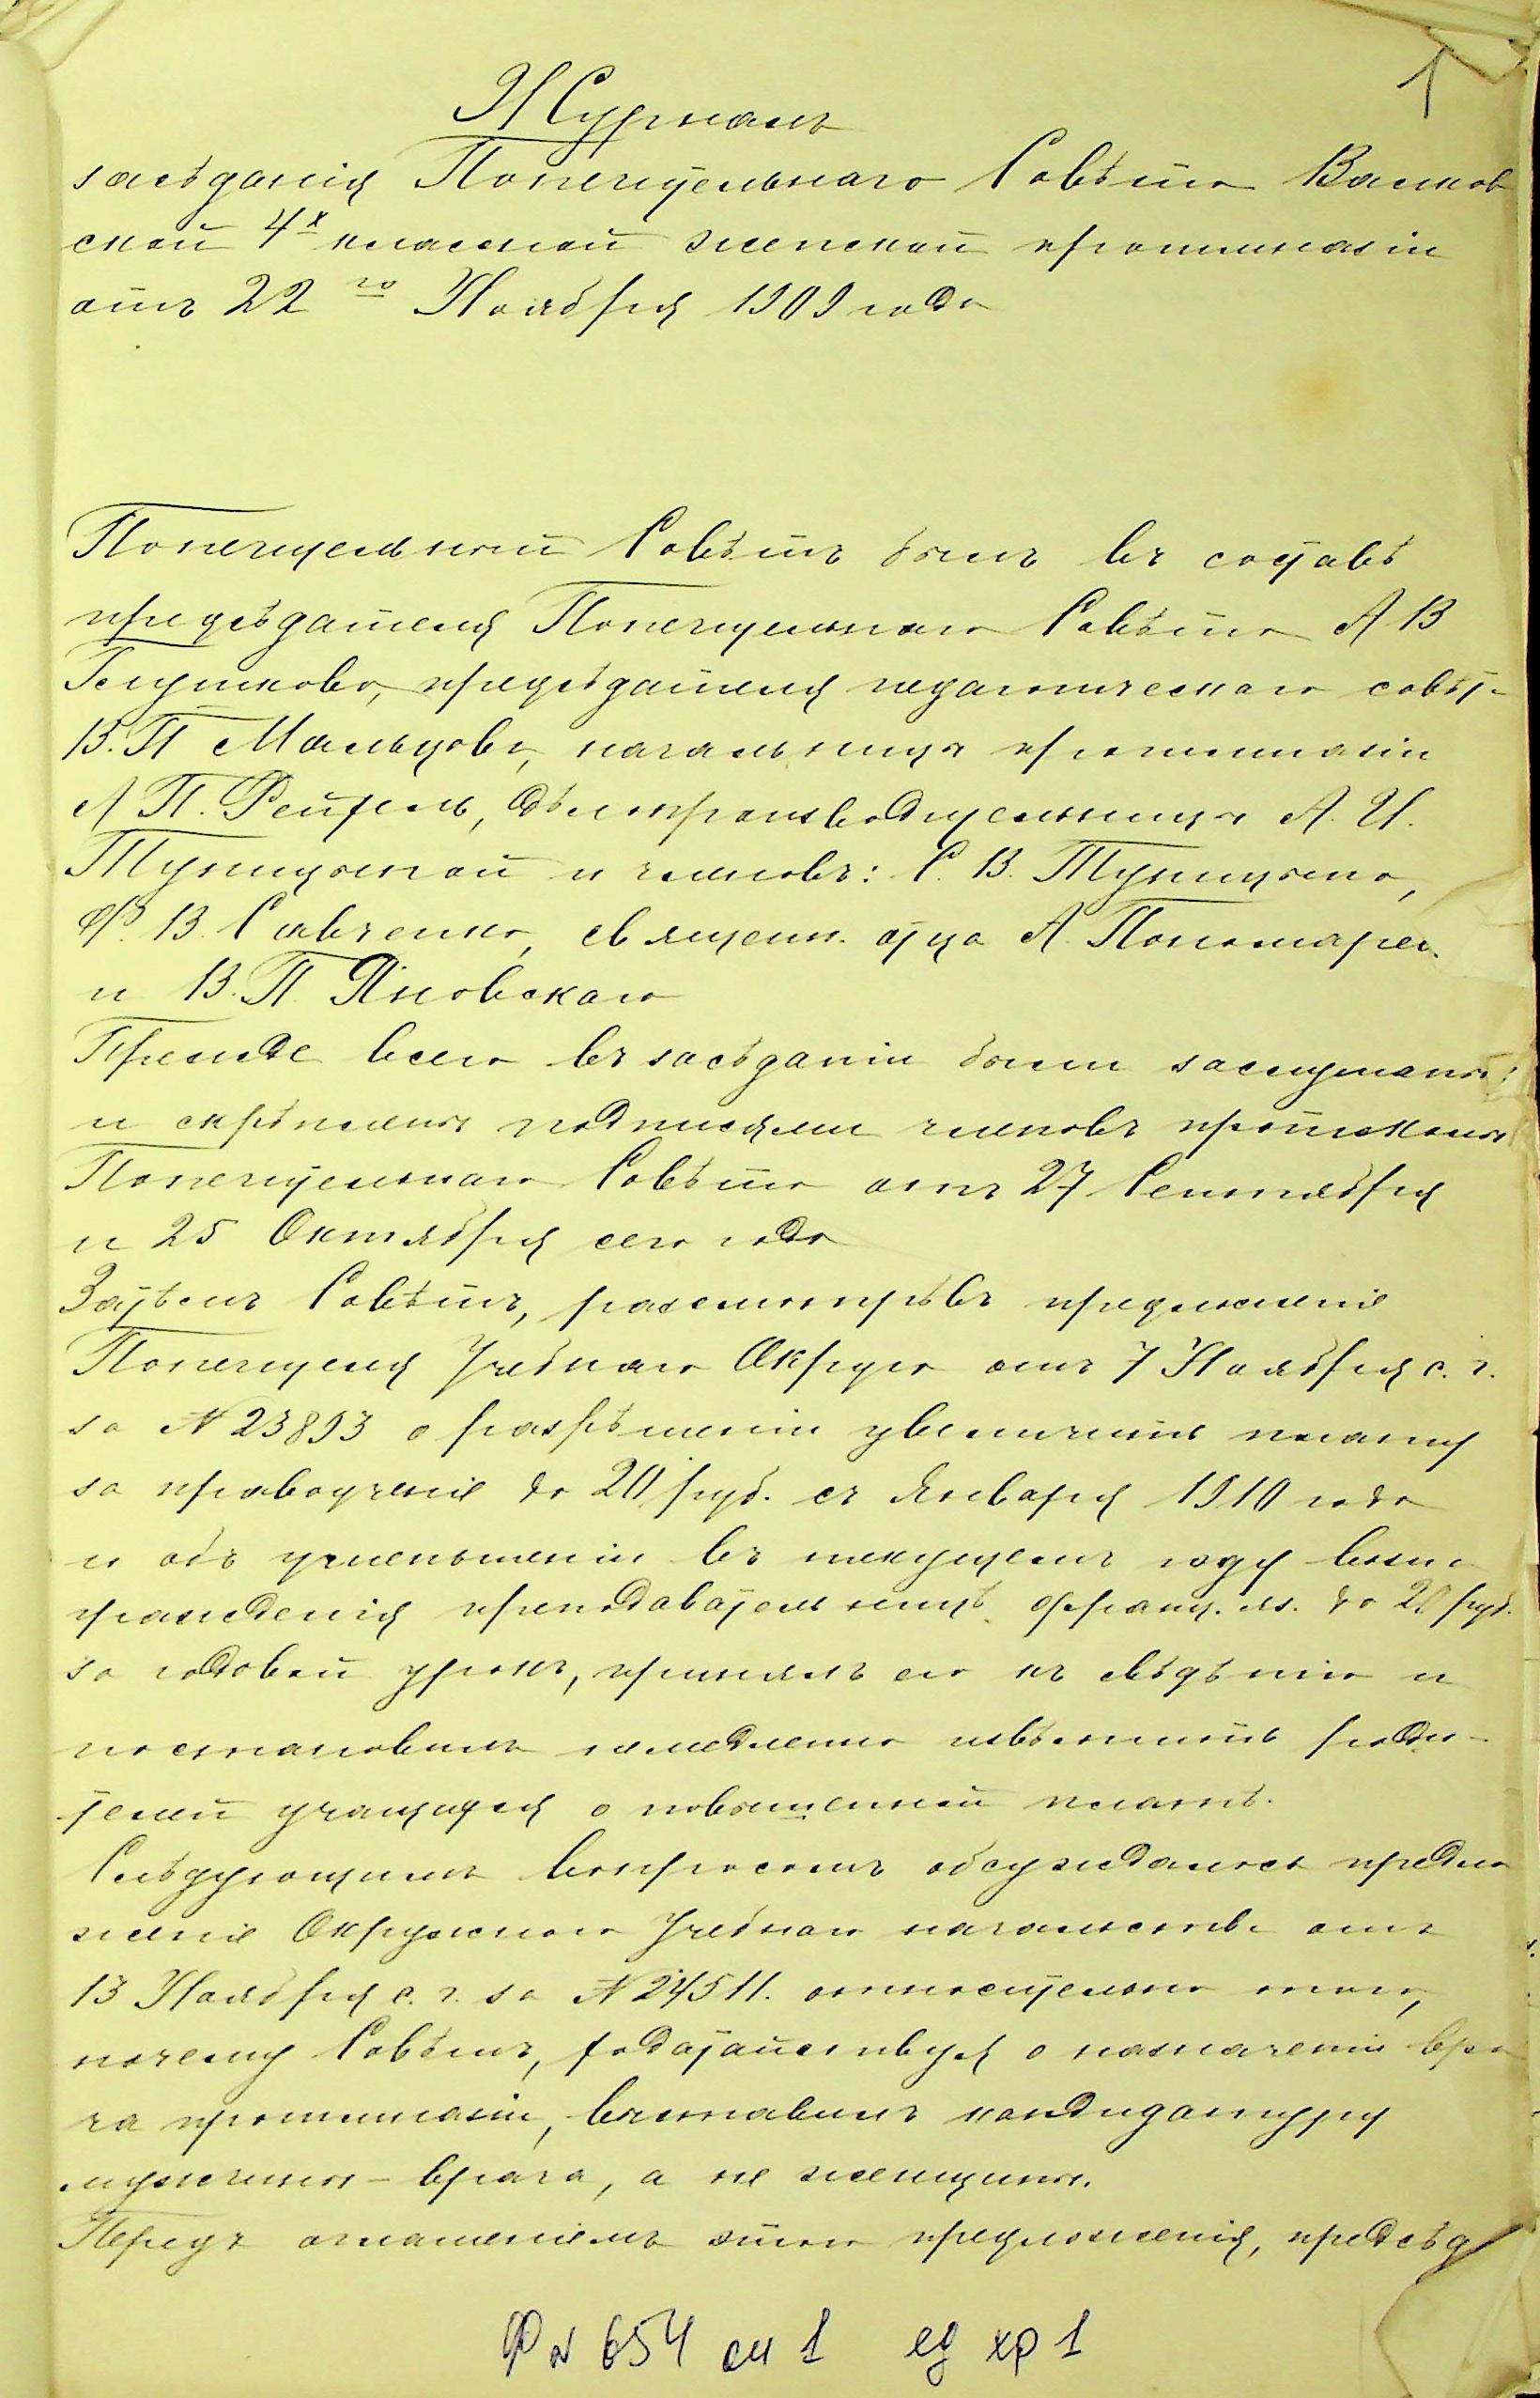 1
Журналъ
засѣданія Попечительнаго Совѣта Валков
ской 4х классной женской прогимназіи
отъ 22го Ноября 1909 года
Попечительный Совѣтъ былъ въ составѣ
предсѣдателя Попечительнаго Совѣта А В
Глушкова, предсѣдателя педагогическаго совѣт.
В. П Мальцова, начальницы прогимназіи
А П. Рейпель, дѣлопроизводительницы А. И.
Тупицыной и членовъ: С. В. Тупицына,
Ф. В. Савченко, священ. отца А. Пономарев.
и В. П. Яновскаго
Прежде всего въ засѣданіи были заслушаны
и скрѣплены подписями членовъ протоколы
Попечительнаго Совѣта отъ 27 Сентября
и 25 Октября сего года
Затѣмъ Совѣтъ, разсмотрѣвъ предложеніе
Попечителя Учебнаго Округа отъ 7 Ноября с. г.
за № 23893 о разрѣшеніи увеличить плату
за правоученіе до 20 руб. съ Января 1910 года
и объ уменьшеніи въ текущемъ году возна
гражденія преподавательницѣ франц. яз. до 20 руб.
за годовой урокъ, принялъ его къ свѣдѣнію и
постановилъ немедленно извѣстить роди-
телей учащихся о повышенной платѣ.
Слѣдующимъ вопросомъ обсуждалось предло
женіе Окружного Учебнаго начальства отъ
13 Ноября с. г. за № 24511. относительно того,
почему Совѣтъ, ходатайствуя о назначеніи вра
ча прогимназіи, выставилъ кандидатуру
мужчины - врача, а не женщины.
Передъ оглашеніемъ этого предложенія, предсѣд
Ф № 654 оп 1 ед хр 1